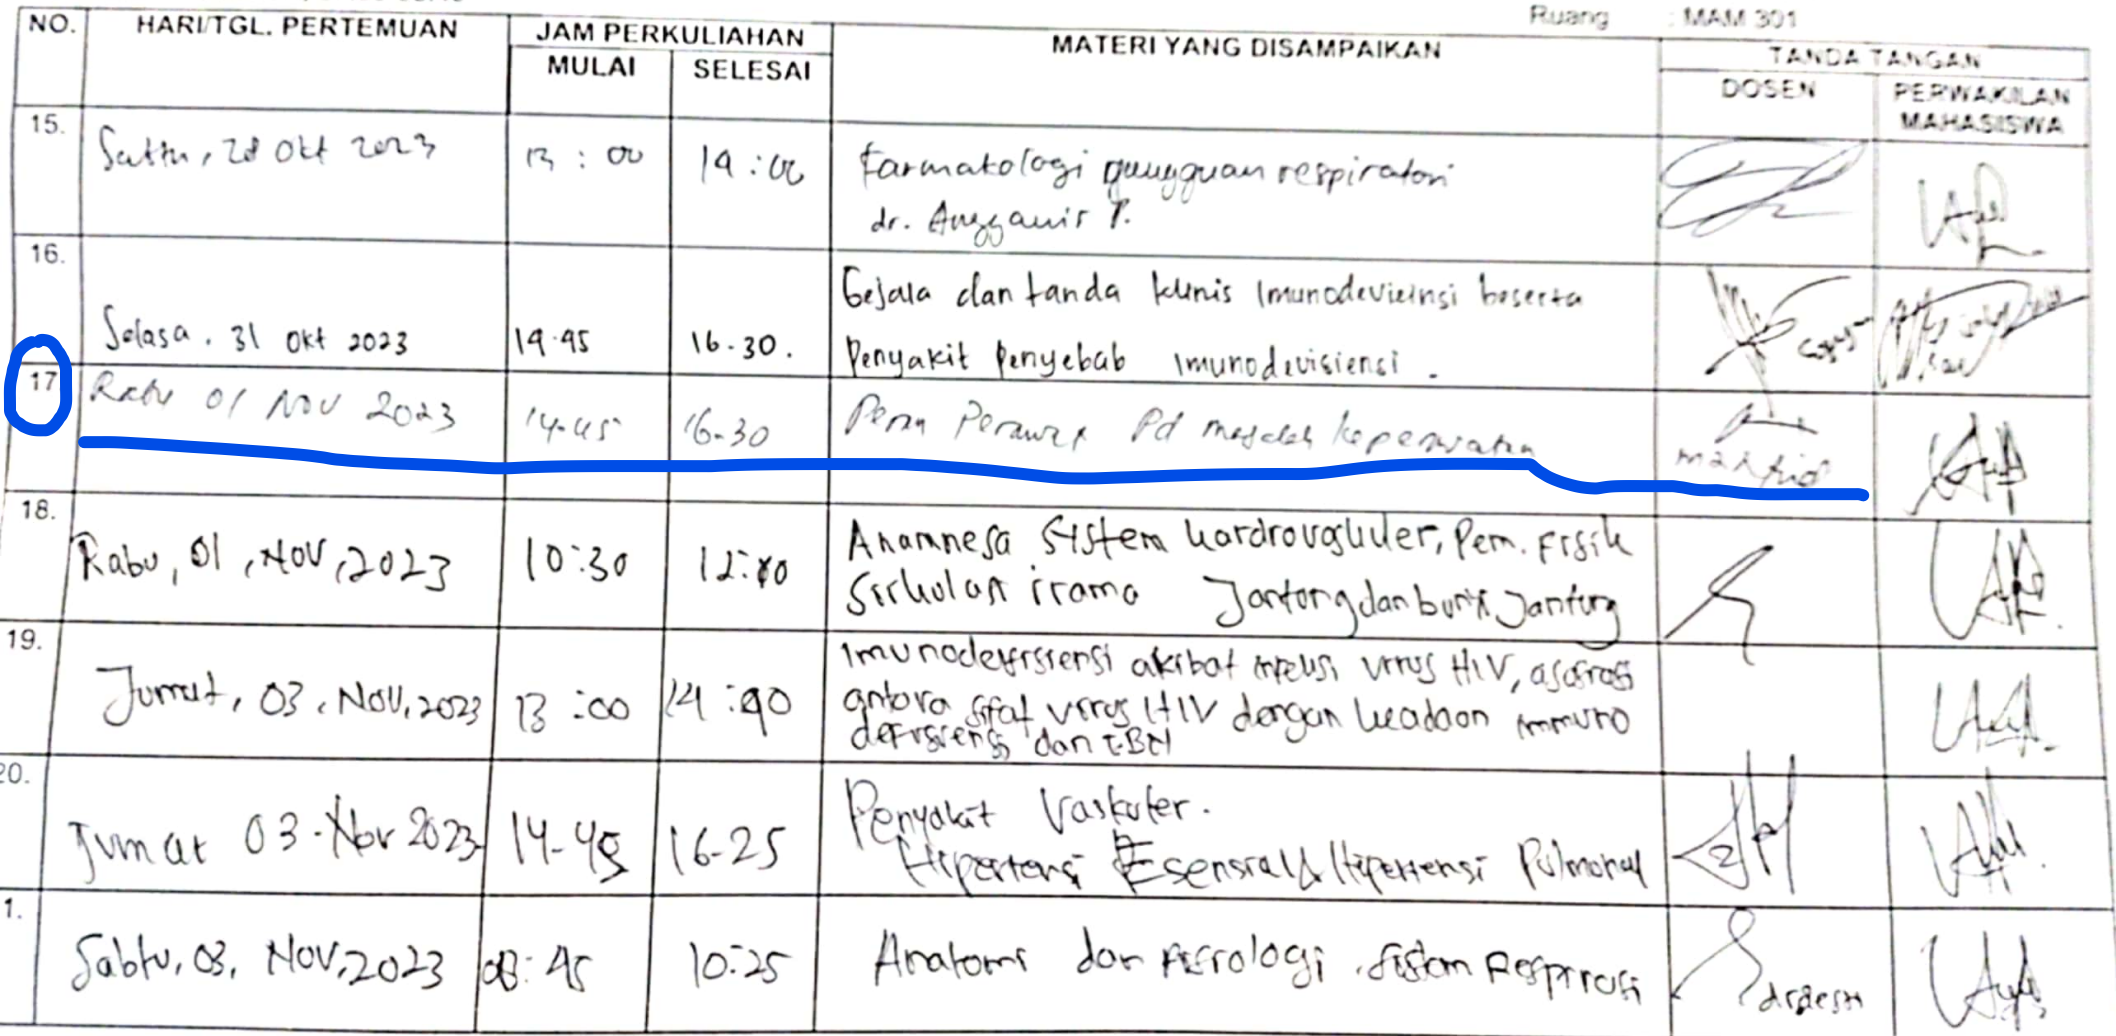 Ruang : MAM 301
NO. HARI/TGL. PERTEMUAN JAM PERKULIAHAN MATERI YANG DISAMPAIKAN TANDA TANGAN
MULAI SELESAI DOSEN PERWAKILAN MAHASISWA
15. Sabtu, 28 Okt 2023 13 : 00 14 : 00 Farmakologi gangguan respiratori
dr. Anggauis P.
16. Selasa. 31 Okt 2023 14.45 16.30. Gejala dan tanda klinis Imunodevieinsi beserta
Penyakit Penyebab Imunodevisiensi.
17 Rabu 01 Nov 2023 14.45 16.30 Peran Perawat Pd masalah keperawatan
18. Rabu, 01, Nov, 2023 10:30 12:10 Anamnesa Sistem kardrovaskuler, Pem. Fisik
Sirkulasi irama Jantong dan bunyi Jantung
19. Jumat, 03, Nov, 2023 13:00 14:40 Imunodefisiensi akibat infeksi virus HIV, asosiasi
antara sifat virus HIV dengan keadaan immuno
defisiensi dan
20. Jumat 03-Nov 2023 14-45 16-25 Penyakit Vaskuler.
Hipertensi Esensial & Hipertensi Pulmonal
1. Sabtu, 03, Nov, 2023 08:45 10:25 Anatomi dan Fisiologi sistem Respirasi